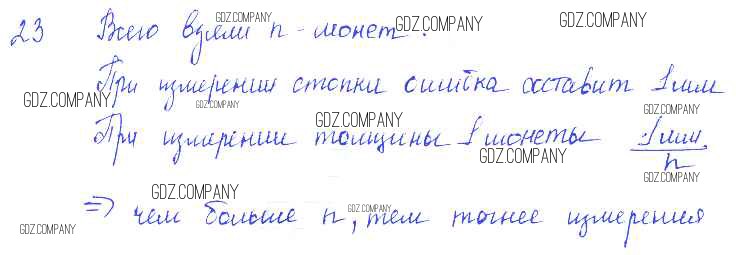 23 Всего взяли n - монет.
При измерении стопки ошибка составит 1 мм
При измерении толщины 1 монеты 1 мм / n
⇒ чем больше n, тем точнее измерения
GDZ.COMPANY
GDZ.COMPANY
GDZ.COMPANY
GDZ.COMPANY
GDZ.COMPANY
GDZ.COMPANY
GDZ.COMPANY
GDZ.COMPANY
GDZ.COMPANY
GDZ.COMPANY
GDZ.COMPANY
GDZ.COMPANY